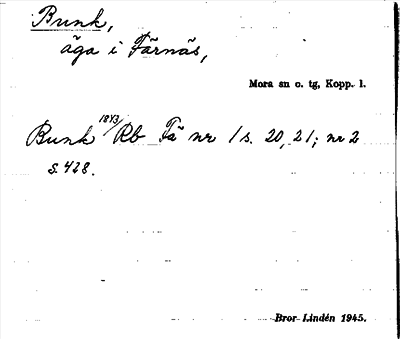 Bunk,
äga i Färnäs,
Mora sn o. tg, Kopp. l.
Bunk 1843/ Rb Fä nr 1 s. 20, 21; nr 2
s. 428.
Bror Lindén 1945.